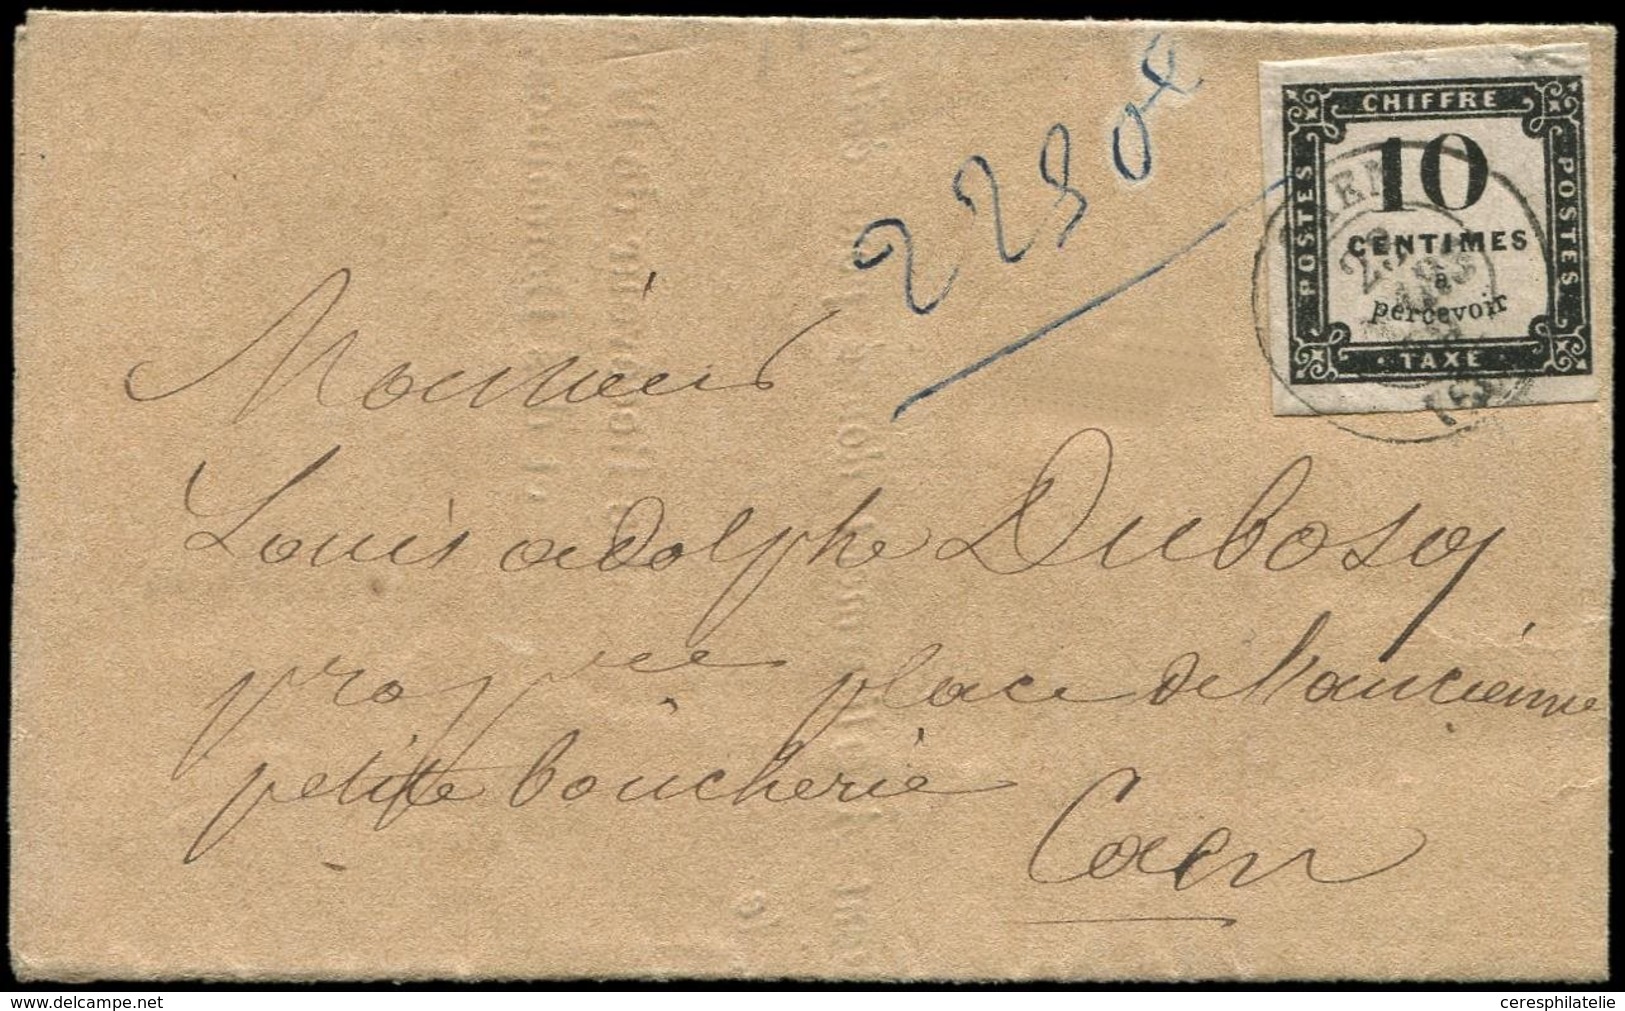 22804
CHIFFRE
POSTES
10
CENTIMES
à
percevoir
POSTES
TAXE
CAEN
Monsieur
Louis adolphe Dubosq
propre place de l'ancienne
petite boucherie
Caen
www.delcampe.net
ceresphilatelie